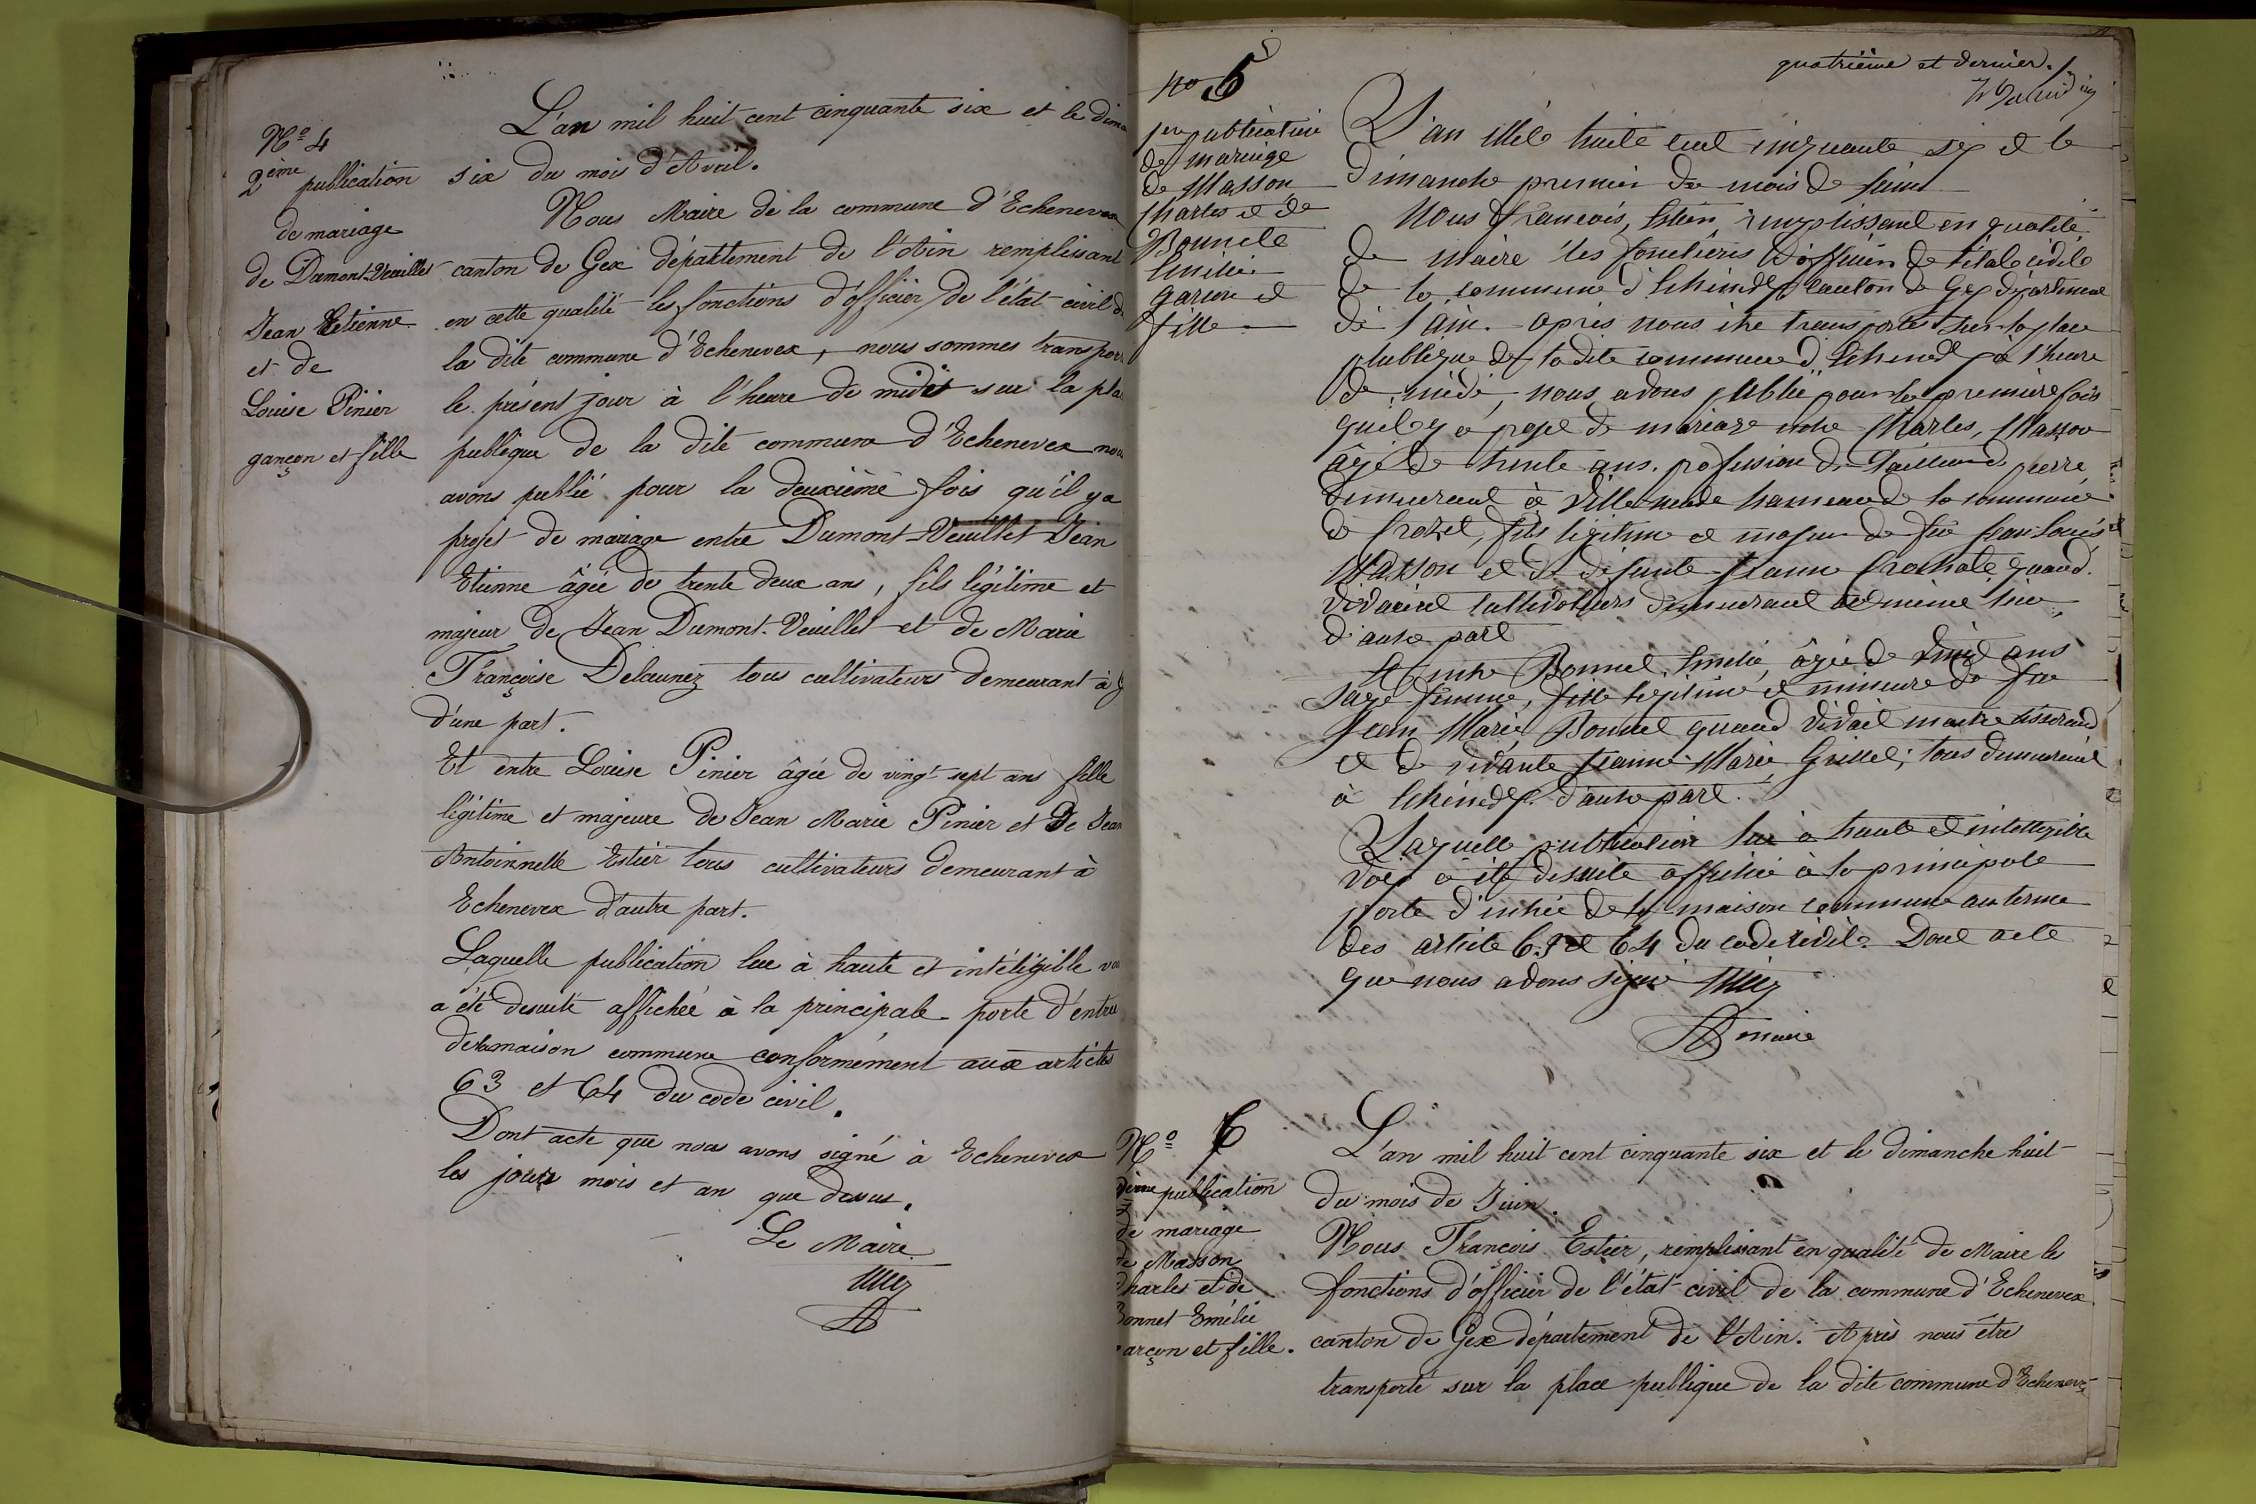 L'an mil huit cent cinquante six et le dima
six du mois d'Avril.
Nº 4
2ème publication
de mariage
de Dumont-Veuillet
Jean Etienne
et de
Louise Pinier
garçon et fille
Nous Maire de la commune d'Echenevex
canton de Gex département de l'Ain remplissant
en cette qualité les fonctions d'officier de l'état civil d
la dite commune d'Echenevex, nous sommes transpor
le présent jour à l'heure de midi sur la pla
publique de la dite commune d'Echenevex nou
avons publié pour la deuxième fois qu'il y a
projet de mariage entre Dumont-Veuillet Jean
Etienne âgée de trente deux ans, fils légitime et
majeur de Jean Dumont-Veuillet et de Marie
Françoise Delaunez tous cultivateurs demeurant à
d'une part.
Et entre Louise Pinier âgée de vingt sept ans fille
légitime et majeure de Jean Marie Pinier et De Jean
Antoinnette Estier tous cultivateurs demeurant à
Echenevex d'autre part.
Laquelle publication lue à haute et intéligible vo
a été desuite affichée à la principale porte d'entrée
de la maison commune conformément aux articles
63 et 64 du code civil.
Dont acte que nous avons signé à Echenevex
les jours mois et an que dessus.
Le Maire
quatrième et dernier.
no 5
1ere publication
de mariage
de Masson
Charles et de
Bonnete
Emilie
garcon et
fille
L'an mile huite cent cinquante six et le
dimanche premier du mois de Juin
Nous francois, Estier, remplissant en qualité
de maire les fonctieres d'officier de l'étale civile
de la commune d'Echenevex canton de Gex département
de l'ain. après nous être transporter sur la place
publique de la dite commune d'Echenevex à l'heure
de midi, nous avons publié pour la premiere fois
quil y a projet de mariage entre Charles, Masson
âgé de trente ans. profession de Tailleur de pierre
demeurant à Ville hameau de la commune
de Crozet, fils légitime et majeur de feu Jean Louis
Masson et de défunte Jeanne quand
vivaient cultivateurs demeurant au même lieu
d'autre part
Et entre Bonnet Emelie, âgée de vingt ans
sage femme, fille légitime et mineure de feu
Jean Marie Bonnet quand vivait maitre tisserand
et de vivante Jeanne Marie Grillet; tous demeurant
à Echenevex d'autre part.
Laquelle publication lue à haute et intelligible
voix a été desuite affichée à la principale
porte d'entrée de la maison commune au terme
des article 63 et 64 du code civile. Dont acte
que nous avons signé
maire
Nº 6
2ème publication
de mariage
de Masson
Charles et de
Bonnet Emélie
garçon et fille.
L'an mil huit cent cinquante six et le dimanche huit
du mois de Juin.
Nous François Estier, remplissant en qualité de Maire les
fonctions d'officier de l'état civil de la commune d'Echenevex
canton de Gex département de l'Ain. Après nous être
transporté sur la place publique de la dite commune d'Echenevex